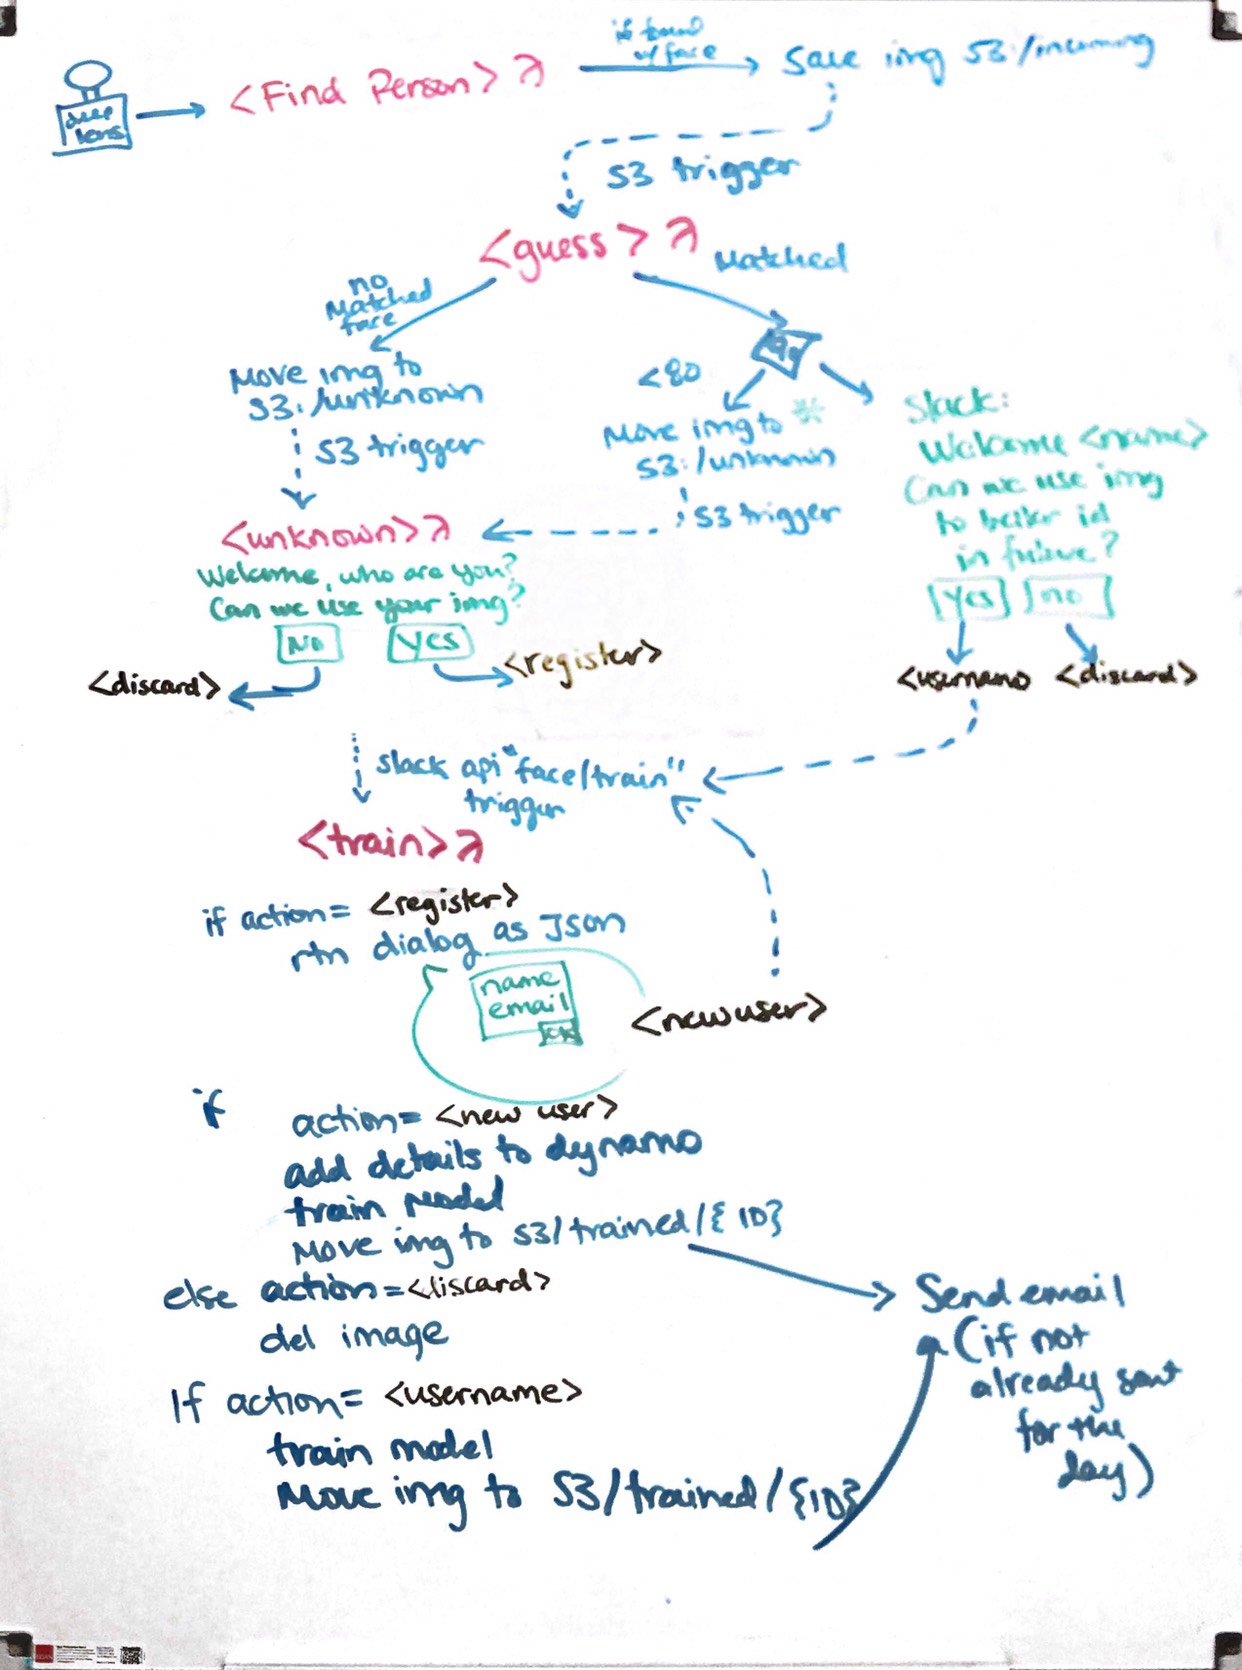 deep
lens
<Find Person> λ
if found
w/face
Save img S3:/incoming
S3 trigger
<guess> λ
Matched
no
Matched
face
Move img to
S3:/unknown
S3 trigger
%
<80
Move img to *
S3:/unknown
S3 trigger
Slack:
Welcome <name>
Can we use img
to better id
in future?
Yes no
<username <discard>
<unknown> λ
Welcome, who are you?
Can we use your img?
No Yes
<discard>
<register>
slack api "face/train"
trigger
<train> λ
if action= <register>
rtn dialog as Json
name
email
ok
<newuser>
if action= <new user>
add details to dynamo
train model
Move img to S3/trained/{ID}
else action=<discard>
del image
If action= <username>
train model
Move img to S3/trained/{ID}
Send email
(if not
already sent
for the
day)